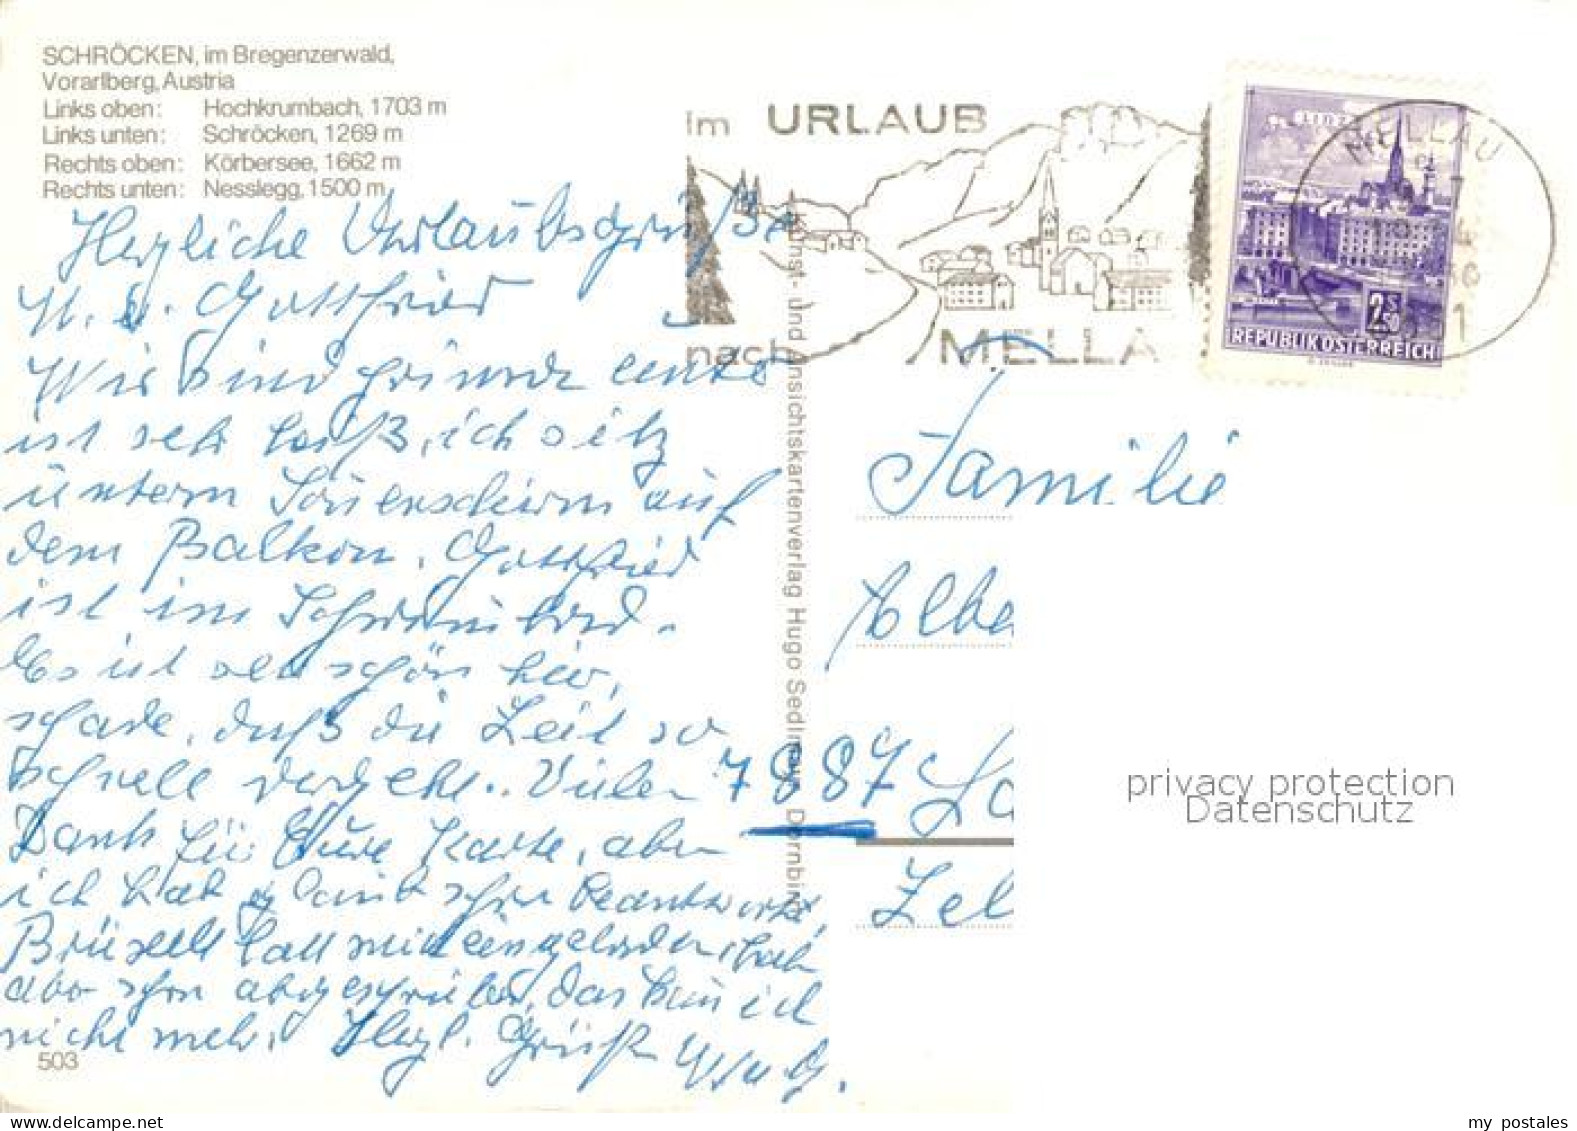 SCHRÖCKEN, im Bregenzerwald,
Vorarlberg, Austria
Links oben: Hochkrumbach, 1703 m
Links unten: Schröcken, 1269 m
Rechts oben: Körbersee, 1662 m
Rechts unten: Nesslegg, 1500 m
im URLAUB
nach MELLA
LINZ
2 S 50
REPUBLIK ÖSTERREICH
MELLAU
Herzliche Urlaubsgrüße
Gottfried
Wir sind
ist sehr heiß, ich sitz
unterm Sonnenschirm auf
dem Balkon, Gottfried
ist im Schwimmbad.
Es ist sehr schön hier,
schade, daß die Zeit so
schnell vergeht. Vielen
Dank für Eure Karte, aber
ich hab schon beantwortet,
eingeladen, hab
aber schon abgeschrieben, das kann ich
nicht mehr. Herzl. Grüße
503
Kunst- und Ansichtskartenverlag Hugo Sedlmayr, Dornbirn
Familie
Albe
7887 La
Zel
privacy protection
Datenschutz
my postales